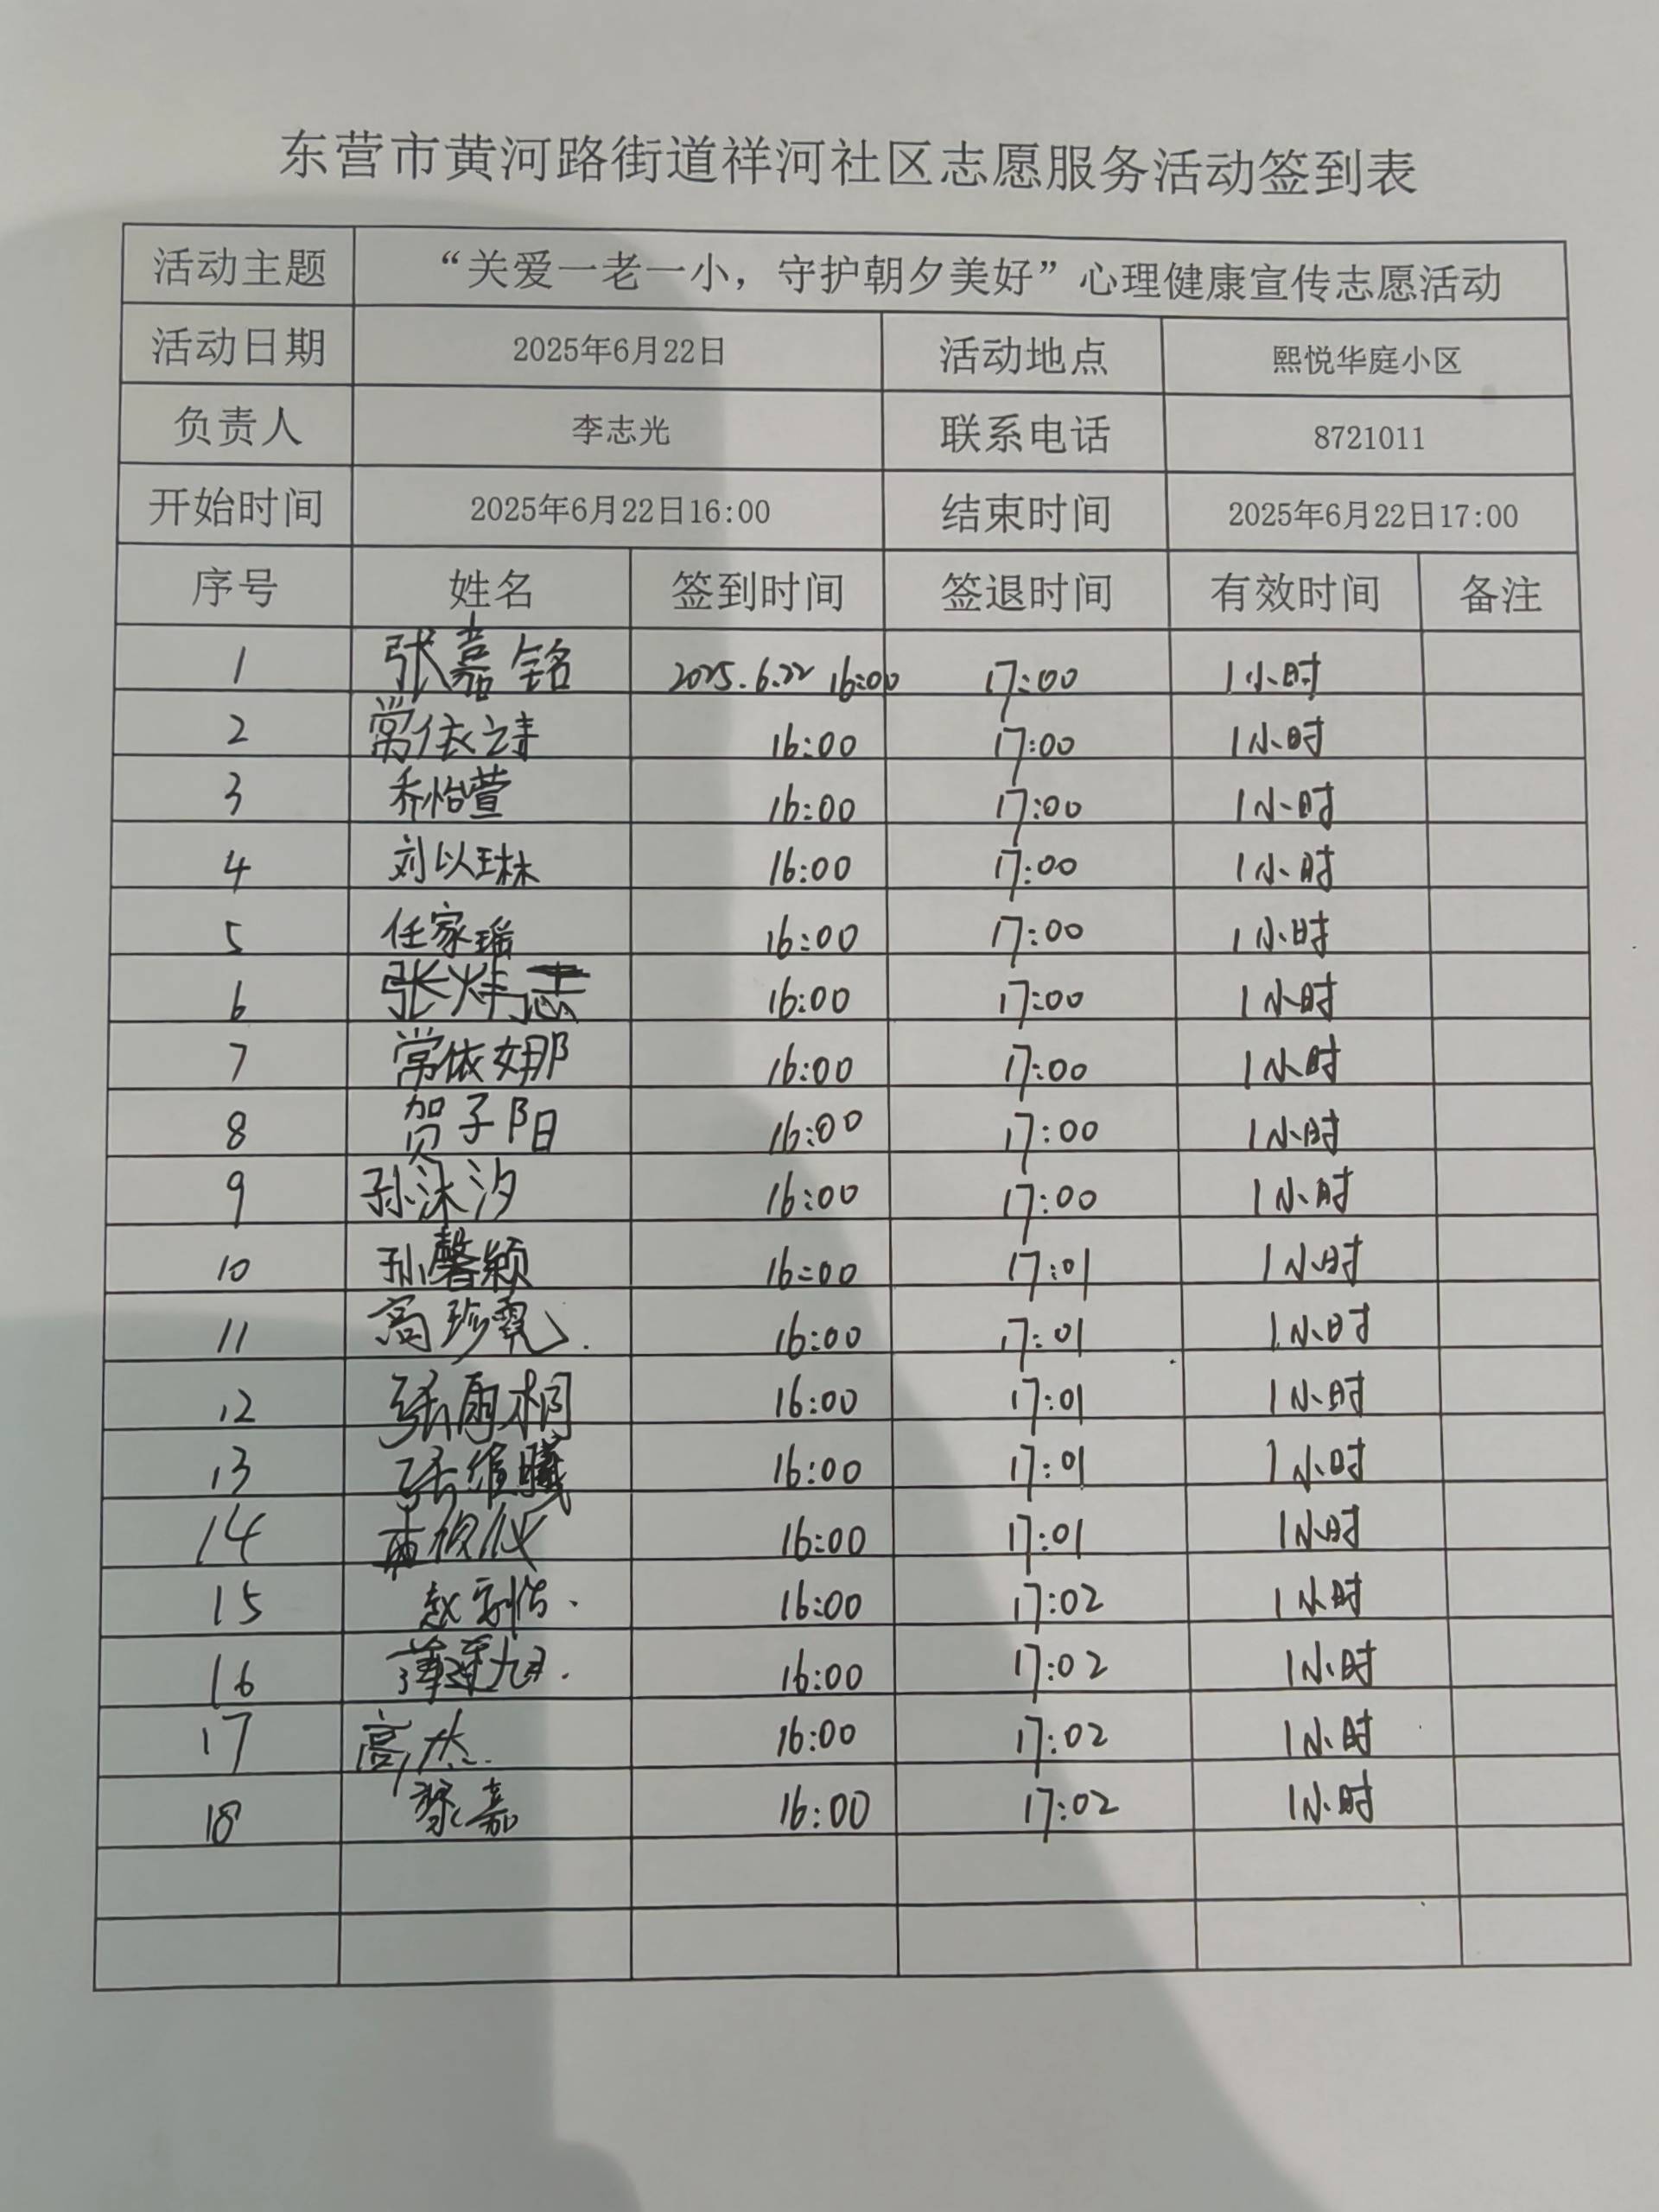 东营市黄河路街道祥河社区志愿服务活动签到表
活动主题 “关爱一老一小，守护朝夕美好”心理健康宣传志愿活动
活动日期 2025年6月22日 活动地点 熙悦华庭小区
负责人 李志光 联系电话 8721011
开始时间 2025年6月22日16:00 结束时间 2025年6月22日17:00
序号 姓名 签到时间 签退时间 有效时间 备注
1 张嘉铭 2025.6.22 16:00 17:00 1小时
2 16:00 17:00 1小时
3 乔怡萱 16:00 17:00 1小时
4 刘以琳 16:00 17:00 1小时
5 任家瑶 16:00 17:00 1小时
6 16:00 17:00 1小时
7 常依娜 16:00 17:00 1小时
8 贺子阳 16:00 17:00 1小时
9 孙沐汐 16:00 17:00 1小时
10 孙馨颖 16:00 17:01 1小时
11 16:00 17:01 1小时
12 张雨桐 16:00 17:01 1小时
13 16:00 17:01 1小时
14 16:00 17:01 1小时
15 16:00 17:02 1小时
16 16:00 17:02 1小时
17 16:00 17:02 1小时
18 16:00 17:02 1小时